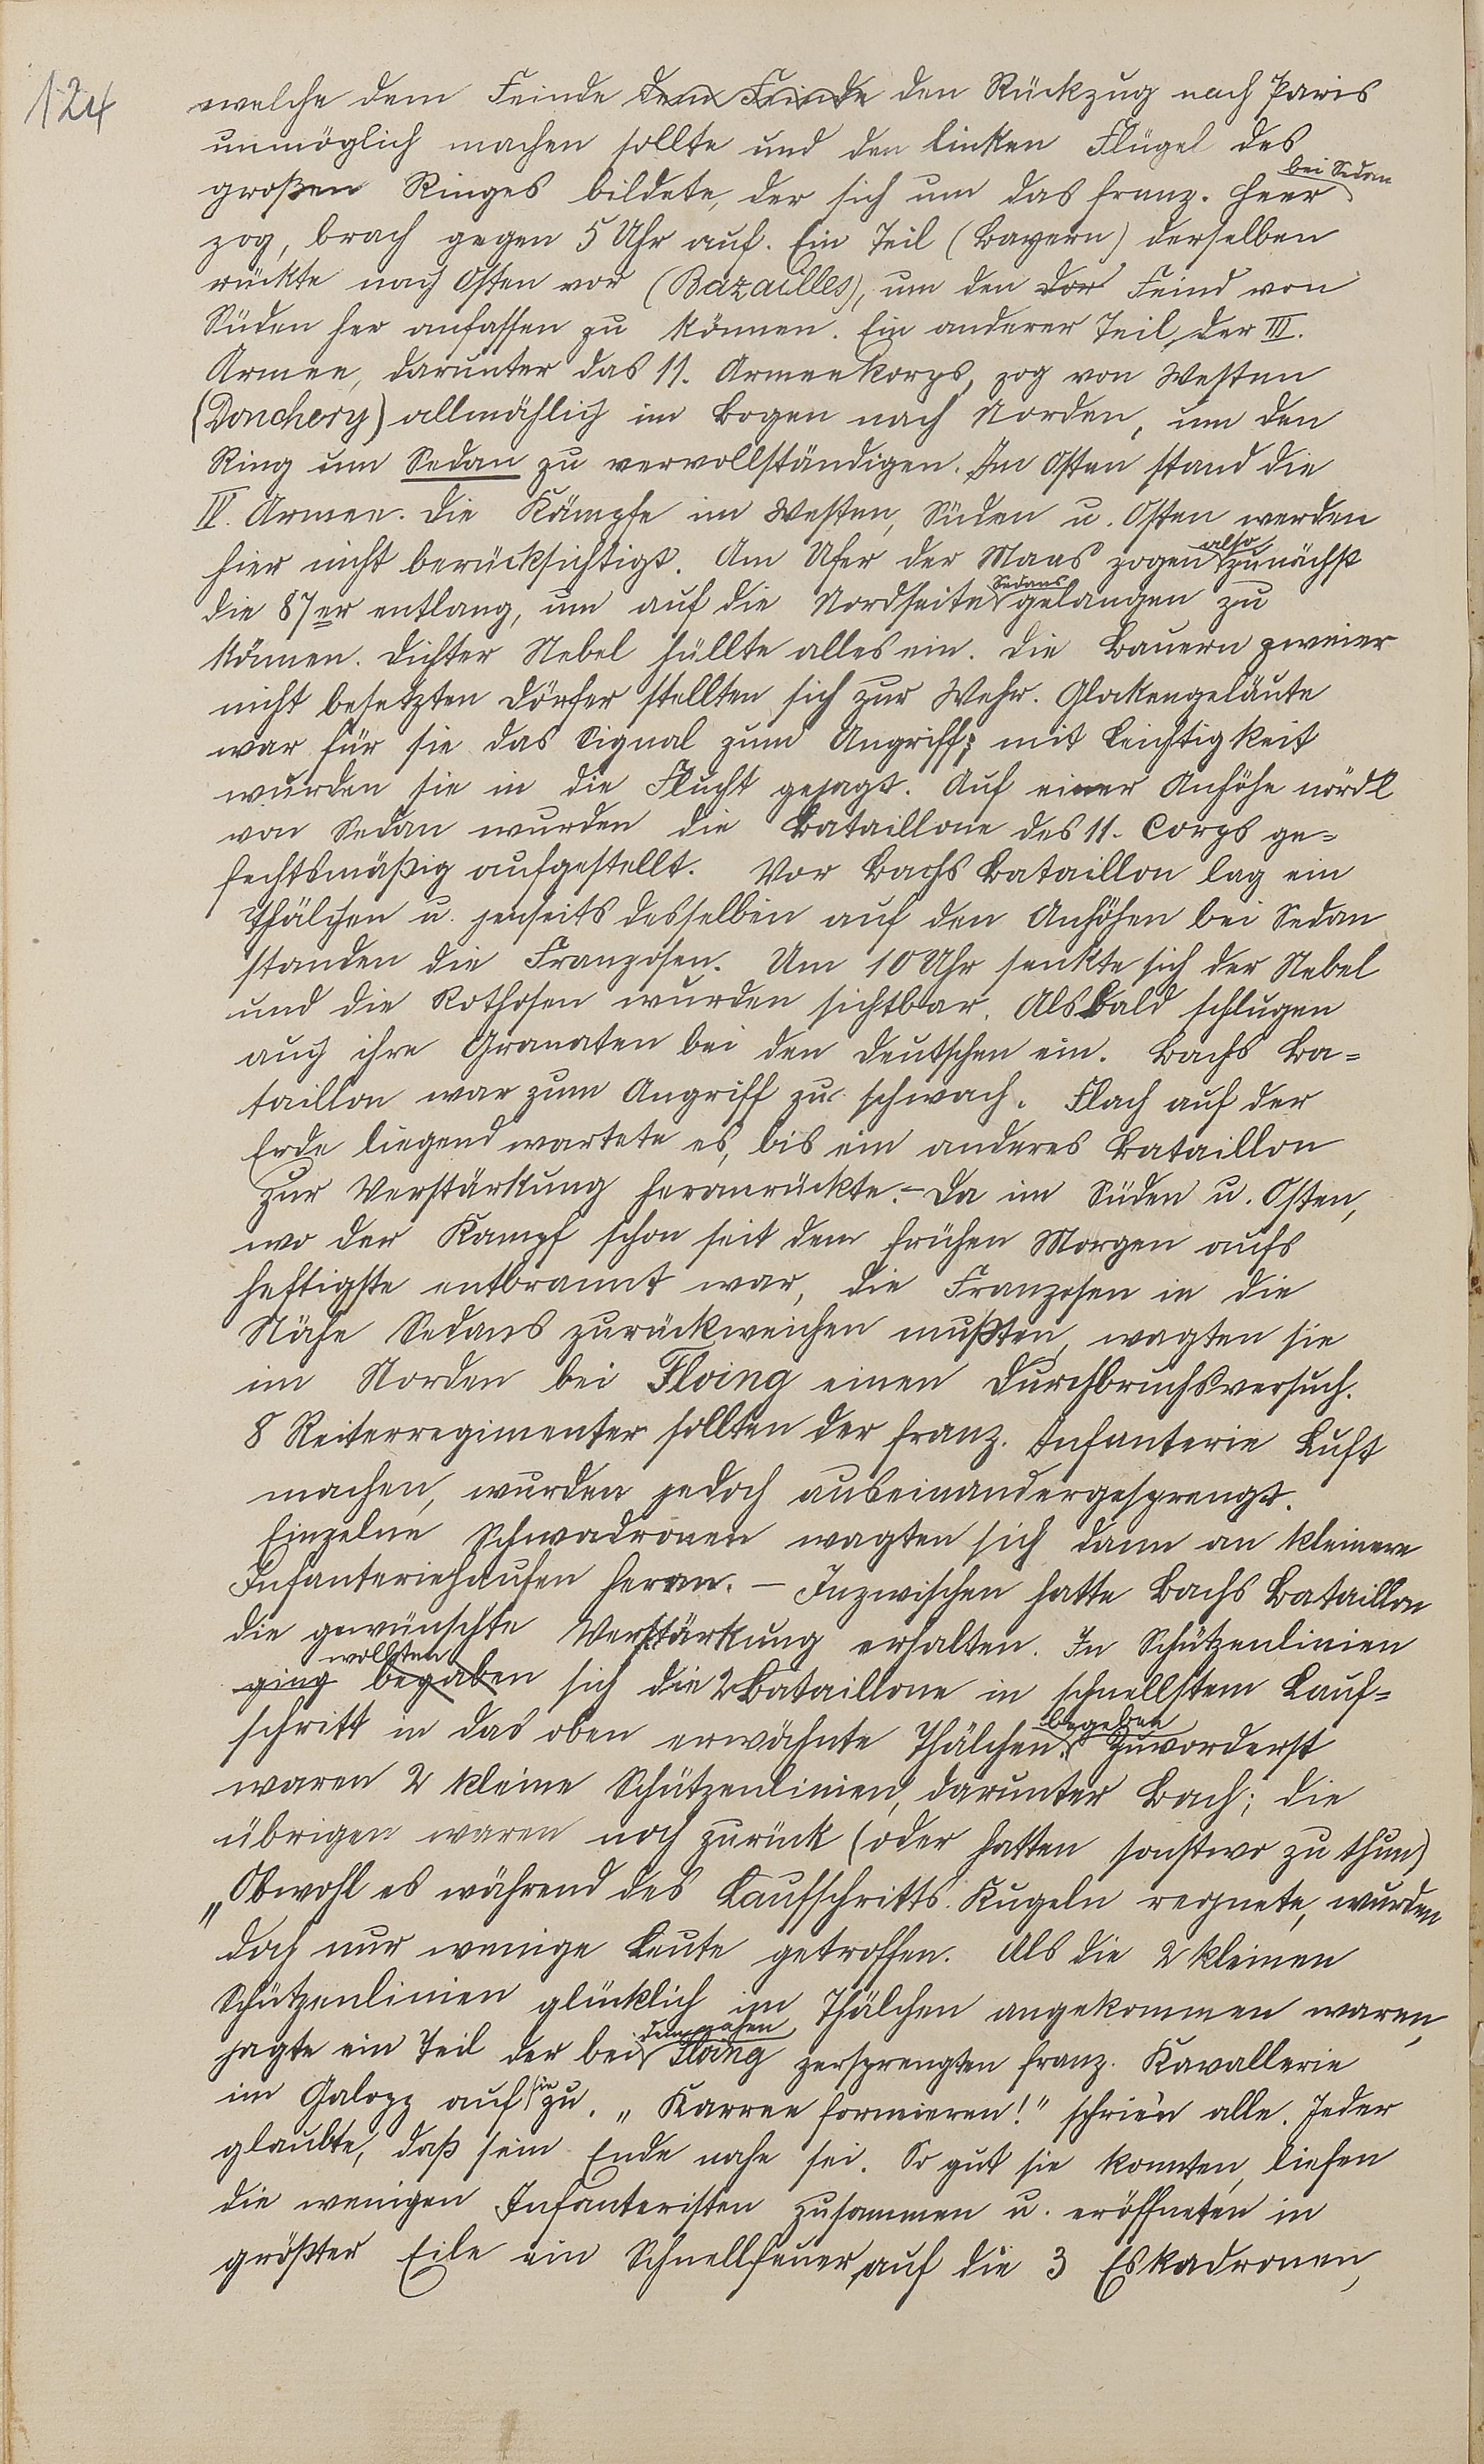 124
welche dem Feinde dem Feinde den Rückzug nach Paris
unmöglich machen sollte und den linken Flügel des
großen Ringes bildete, der sich um das franz. Heer bei Sedan
zog, brach gegen 5 Uhr auf. Ein Teil (Bayern) derselben
rückte nach Osten vor (Bazailles), um den dor Feind von
Süden her anfassen zu können. Ein anderer Teil der III.
Armee, darunter das 11. Armeekorps, zog von Westen
(Donchery) allmählich im Bogen nach Norden, um den
Ring um Sedan zu vervollständigen. Im Osten stand die
IV. Armee. Die Kämpfe im Westen, Süden u. Osten werden
hier nicht berücksichtigt. Am Ufer der Maas zogen also zunächst
die 87er entlang, um auf die Nordseite Sedans gelangen zu
können. Dichter Nebel hüllte alles ein. Die Bauern zweier
nicht besetzten Dörfer stellten sich zur Wehr. Glockengeläute
war für sie das Signal zum Angriff; mit Leichtigkeit
wurden sie in die Flucht gejagt. Auf einer Anhöhe nördl
von Sedan wurden die Bataillone des 11. Corps ge=
fechtsmäßig aufgestellt. Vor Bachs Bataillon lag ein
Thälchen u. jenseits desselben auf den Anhöhen bei Sedan
standen die Franzosen. Um 10 Uhr senkte sich der Nebel
und die Rothosen wurden sichtbar. Alsbald schlugen
auch ihre Granaten bei den Deutschen ein. Bachs Ba=
taillon war zum Angriff zu schwach. Flach auf der
Erde liegend wartete es, bis ein anderes Bataillon
zur Verstärkung heranrückte. – Da im Süden u. Osten,
wo der Kampf schon seit dem frühen Morgen aufs
heftigste entbrannt war, die Franzosen in die
Nähe Sedans zurückweichen mußten, wagten sie
im Norden bei Floing einen Durchbruchsversuch.
8 Reiterregimenter sollten der franz. Infanterie Luft
machen, wurden jedoch auseinandergesprengt.
Einzelne Schwadronen wagten sich dann an kleinere
Infanteriehaufen heran. – Inzwischen hatte Bachs Bataillon
die gewünschte Verstärkung erhalten. In Schützenlinien
ging begaben wollten sich die 2 Bataillone in schnellstem Lauf=
schritt in das oben erwähnte Thälchen begeben. Zuvorderst
waren 2 kleine Schützenlinien, darunter Bach; die
übrigen waren noch zurück (oder hatten sonstwo zu thun)
„Obwohl es während des Laufschritts Kugeln regnete, wurden
doch nur wenige Leute getroffen. Als die 2 kleinen
Schützenlinien glücklich im Thälchen angekommen waren,
jagte ein Teil der bei dem nahen Floing zersprengten franz. Kavallerie
im Galopp auf sie zu. „Karree formieren!" schrien alle. Jeder
glaubte, daß sein Ende nahe sei. So gut sie konnten, liefen
die wenigen Infanteristen zusammen u. eröffneten in
größter Eile ein Schnellfeuer auf die 3 Eskadronen,